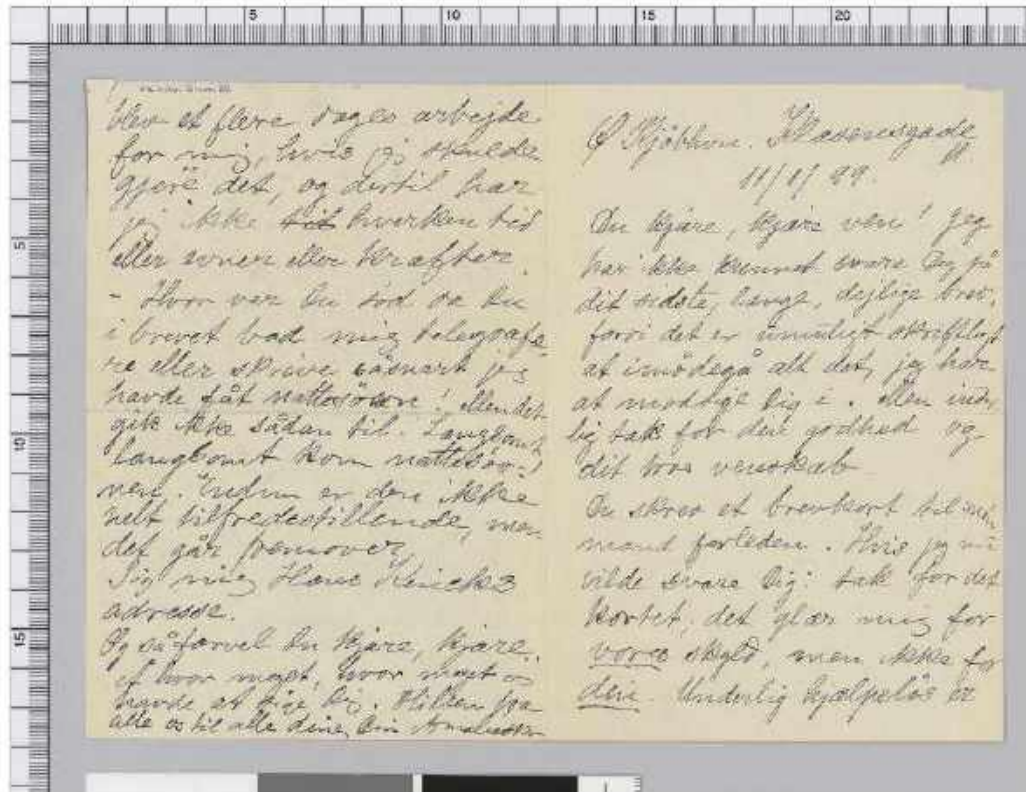 5 10 15 20
5
10
15
blev et flere dages arbejde
for mig, hvis jeg skulde
gjøre det, og dertil har
jeg ikke tid hverken tid
eller evner eller kræfter.
- Hvor var Du sød da Du
i brevet bad mig telegrafe-
re eller skrive såsnart jeg
havde fåt nattesøvn! Men det
gik ikke sådan til. Langsomt
langsomt kom nattesøv-
nen. Endnu er den ikke
helt tilfredsstillende, men
det går fremover.
Sig mig Hans
adresse.
Og så farvel Du kjære, kjære.
hvor meget, hvor meget
havde at sige Dig. Hilsen fra
alle os til alle dine, Din
Ø Kjøbhvn.
11/1/99.
Du kjære, kjære ven! Jeg
har ikke kunnet svare Dig på
dit sidste, lange, dejlige brev,
fordi det er umuligt skriftligt
at imødegå alt det, jeg har
at modsige Dig i. Men inder-
lig tak for din godhed og
dit tros venskab
Du skrev et brevkort til min
mand forleden. Hvis jeg nu
vilde svare Dig: tak for det
kortet, det glær mig for
vores skyld, men ikke for
din. Underlig hjælpeløs er